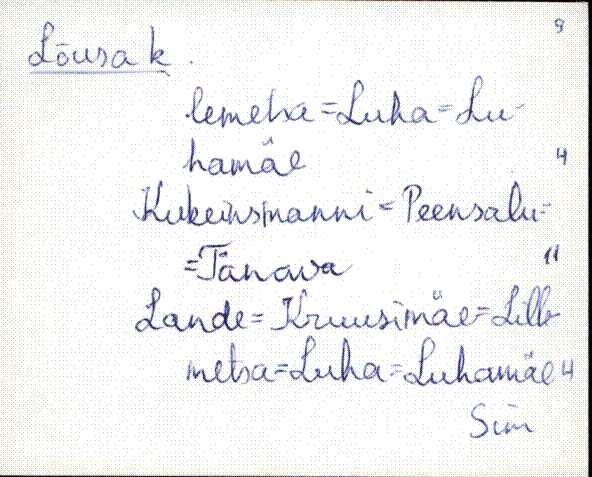 9
Lõusa k.
lemetsa=Luha=Lu-
hamäe 4
Kukeinsmanni=Peensalu=
=Tänava 11
Lande=Kruusimäe=Lille-
metsa=Luha=Luhamäe 4
Sim